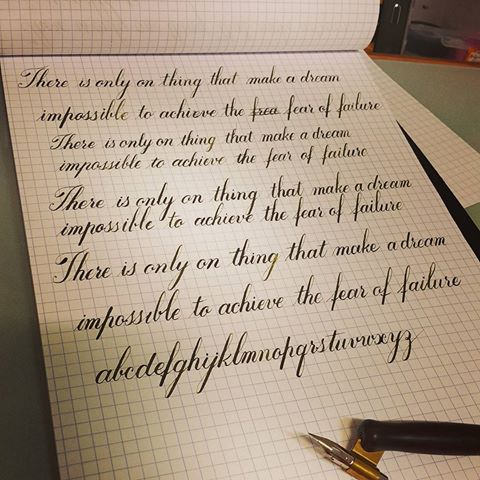 There is only on thing that make a dream
impossible to achieve the frea fear of failure
There is only on thing that make a dream
impossible to achieve the fear of failure
There is only on thing that make a dream
impossible to achieve the fear of failure
There is only on thing that make a dream
impossible to achieve the fear of failure
abcdefghijklmnopqrstuvwxyz